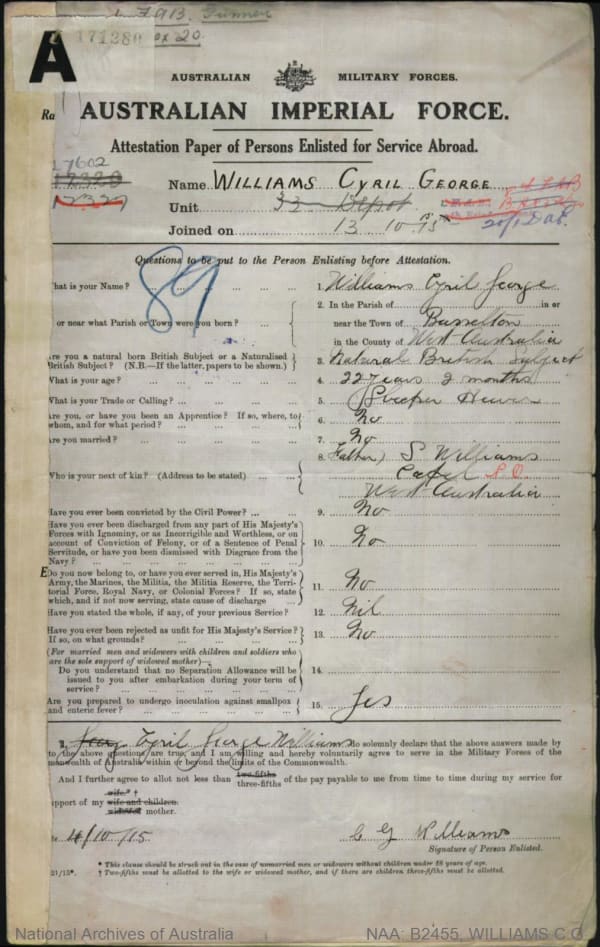 A
171280 ex 20.
AUSTRALIAN MILITARY FORCES.
AUSTRALIAN IMPERIAL FORCE.
Attestation Paper of Persons Enlisted for Service Abroad.
17602
17320
17327
Name WILLIAMS CYRIL GEORGE
Unit 33 Depot
Joined on 13 10 15
89
Questions to be put to the Person Enlisting before Attestation.
hat is your Name? ... 1. Williams Cyril George
2. In the Parish of in or
or near what Parish or Town were you born? ... near the Town of Busselton
in the County of West Australia
re you a natural born British Subject or a Naturalised
British Subject? (N.B.—If the latter, papers to be shown.) 3. Natural British Subject
What is your age? ... 4. 22 years 2 months
What is your Trade or Calling? ... 5. Sleeper Hewer
re you, or have you been an Apprentice? If so, where, to
whom, and for what period? ... 6. No
re you married? ... 7. No
8. (Father) S. Williams
Who is your next of kin? (Address to be stated) ... Capel P.O.
West Australia
Have you ever been convicted by the Civil Power? ... 9. No
Have you ever been discharged from any part of His Majesty's
Forces with Ignominy, or as Incorrigible and Worthless, or on
account of Conviction of Felony, or of a Sentence of Penal 10. No
Servitude, or have you been dismissed with Disgrace from the
Navy? ...
Do you now belong to, or have you ever served in, His Majesty's
Army, the Marines, the Militia, the Militia Reserve, the Terri-
torial Force, Royal Navy, or Colonial Forces? If so, state 11. No
which, and if not now serving, state cause of discharge ...
Have you stated the whole, if any, of your previous Service? 12. Nil
Have you ever been rejected as unfit for His Majesty's Service? 13. No
If so, on what grounds? ...
(For married men and widowers with children and soldiers who
are the sole support of widowed mother)—
Do you understand that no Separation Allowance will be 14.
issued to you after embarkation during your term of
service? ...
Are you prepared to undergo inoculation against smallpox
and enteric fever? ... 15. Yes
I, Cyril George Williams do solemnly declare that the above answers made by
to the above questions are true, and I am willing and hereby voluntarily agree to serve in the Military Forces of the
monwealth of Australia within or beyond the limits of the Commonwealth.
And I further agree to allot not less than two-fifths three-fifths of the pay payable to me from time to time during my service for
wife. †
pport of my wife and children.
widowed mother.
4/10/15. C G Williams
Signature of Person Enlisted.
* This clause should be struck out in the case of unmarried men or widowers without children under 18 years of age.
21/15*. † Two-fifths must be allotted to the wife or widowed mother, and if there are children three-fifths must be allotted.
National Archives of Australia NAA: B2455, WILLIAMS C G